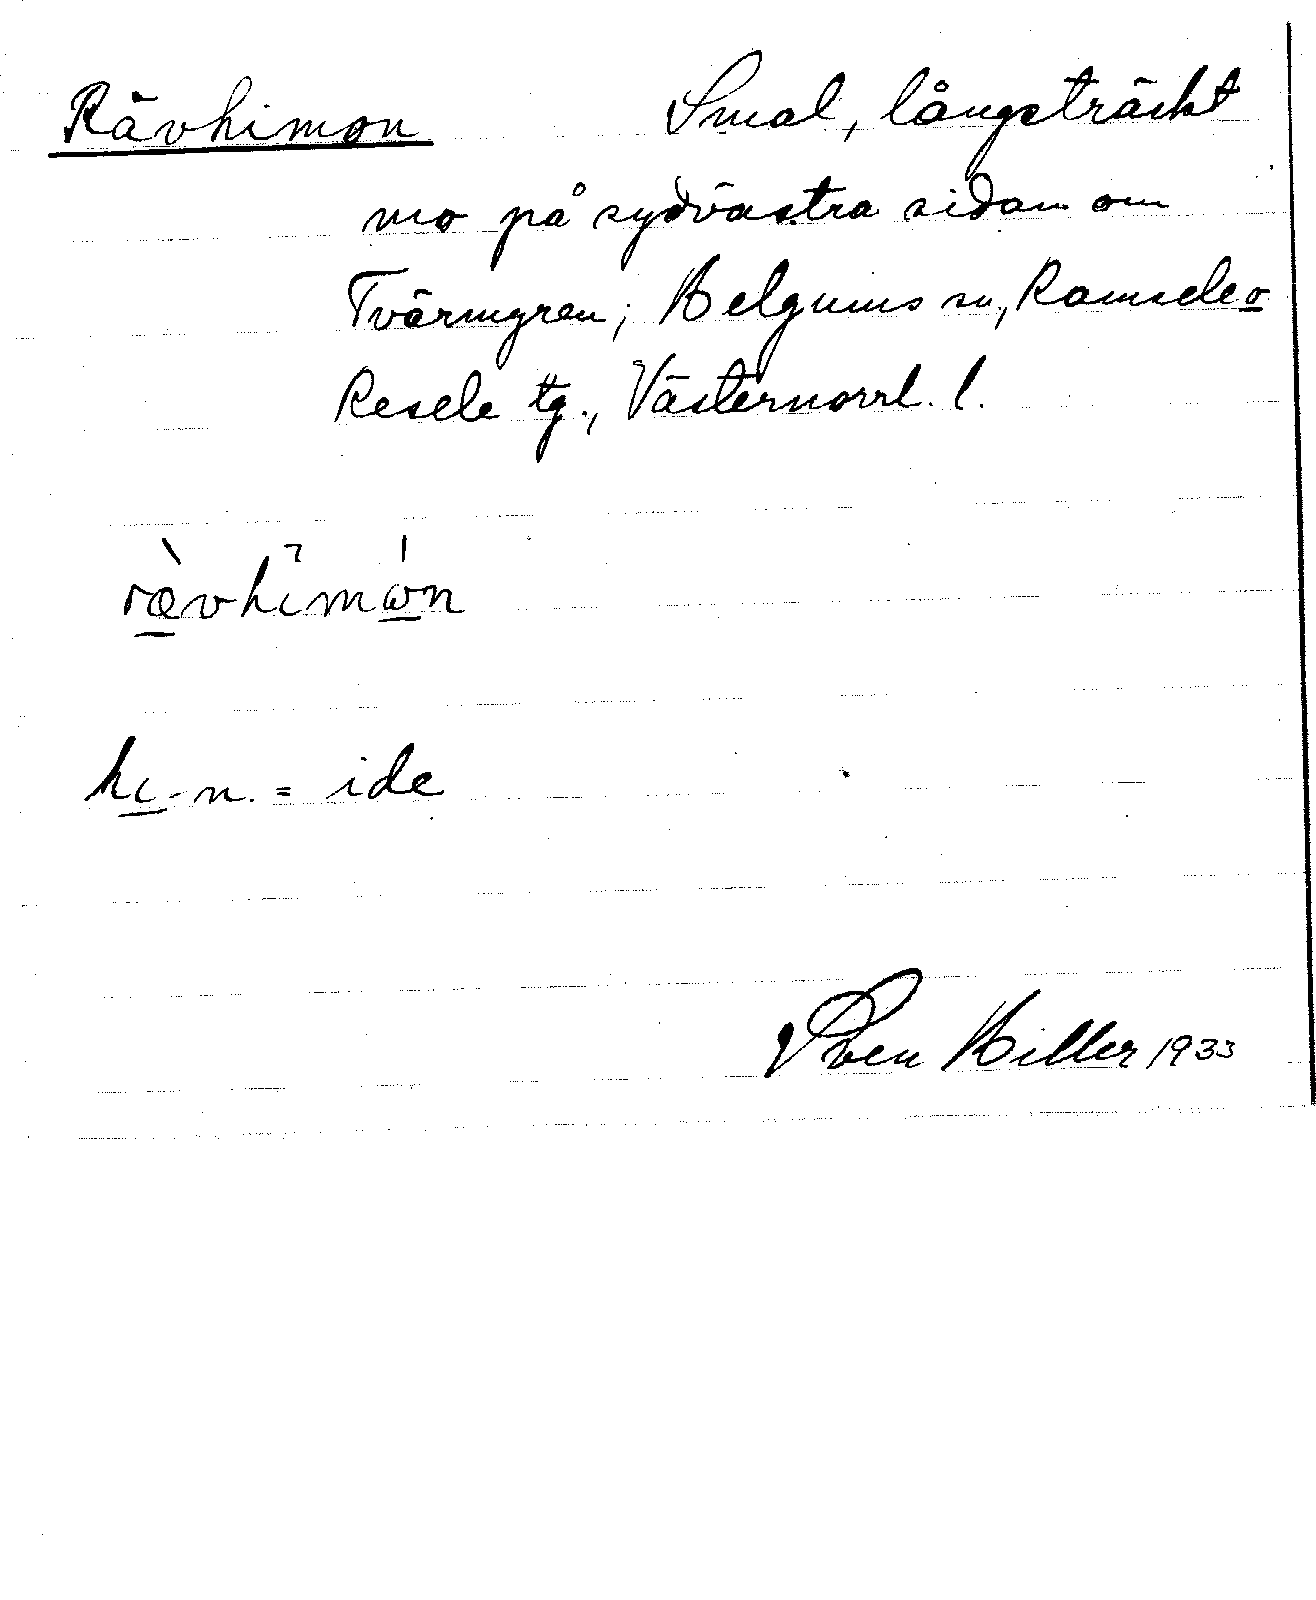 Rävhimon Smal, långsträckt
mo på sydvästra sidan om
Tvärmyren; Helgums sn, Ramsele o
Resele tg., Västernorrl. l.
rævhimωn
hi-n. = ide
Sven Hiller 1933